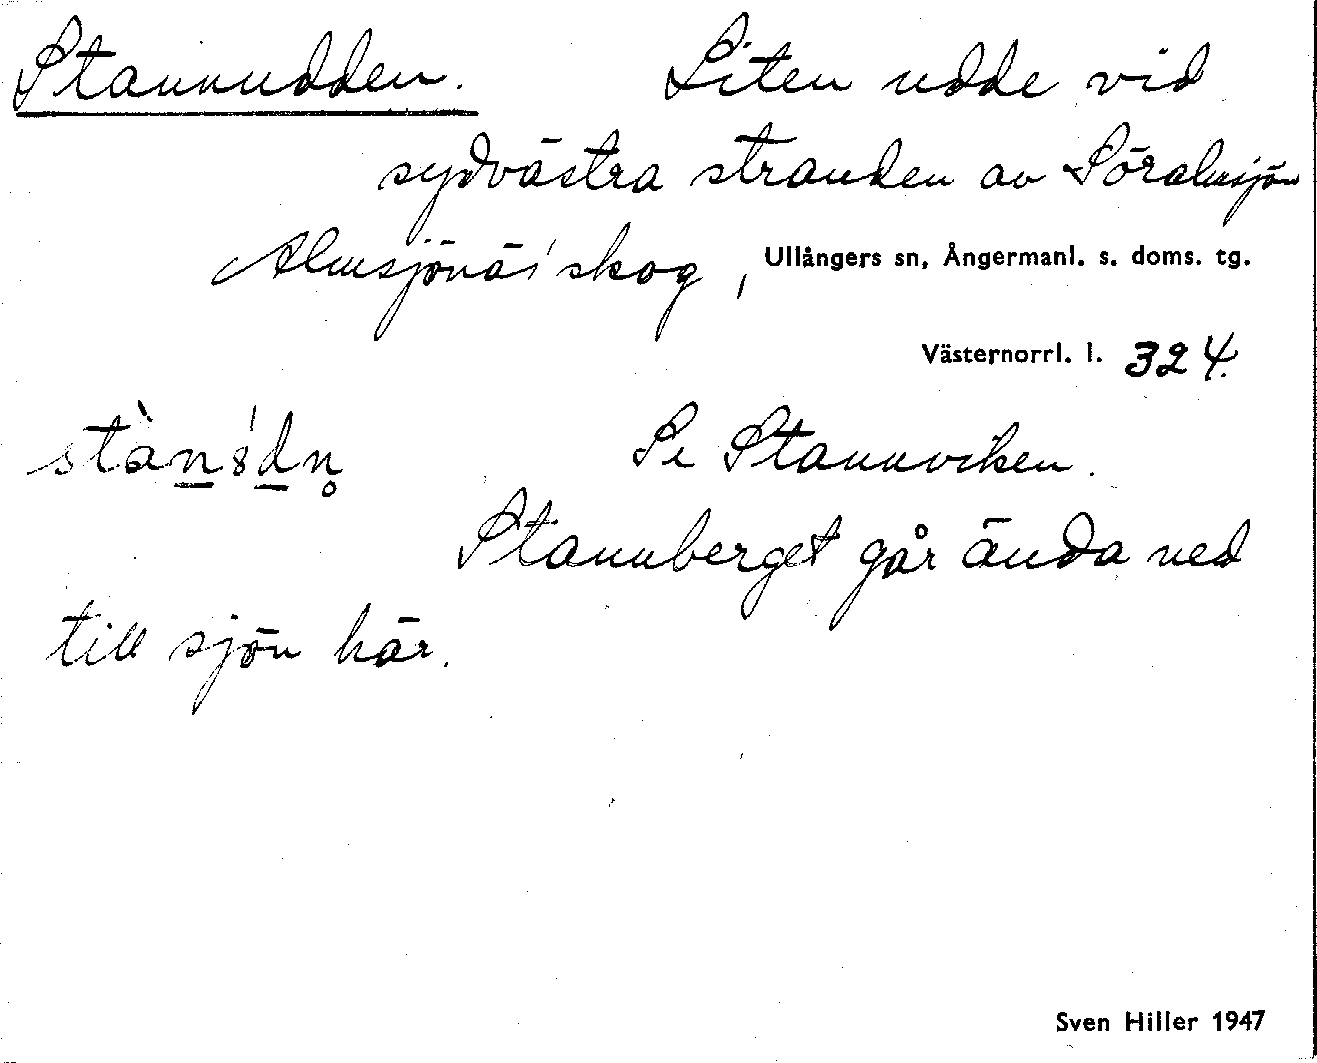 Stannudden. Liten udde vid
sydvästra stranden av Söralmsjön
Almsjönäs' skog, Ullångers sn, Ångermanl. s. doms. tg.
Västernorrl. l. 324.
Se Stannviken.
Stannberget går ända ned
till sjön här.
Sven Hiller 1947